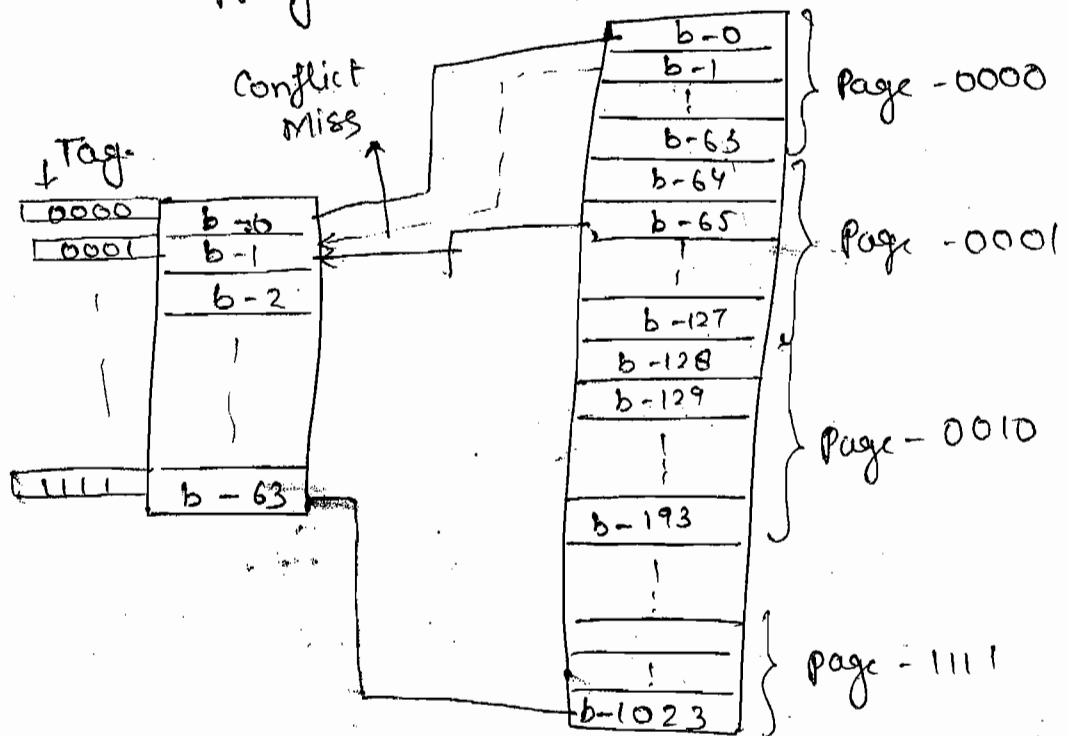 Conflict
Miss
Tag.
0000
b-0
0001
b-1
b-2
1111
b-63
b-0
b-1
b-63
b-64
b-65
b-127
b-128
b-129
b-193
b-1023
Page-0000
Page-0001
Page-0010
Page-1111